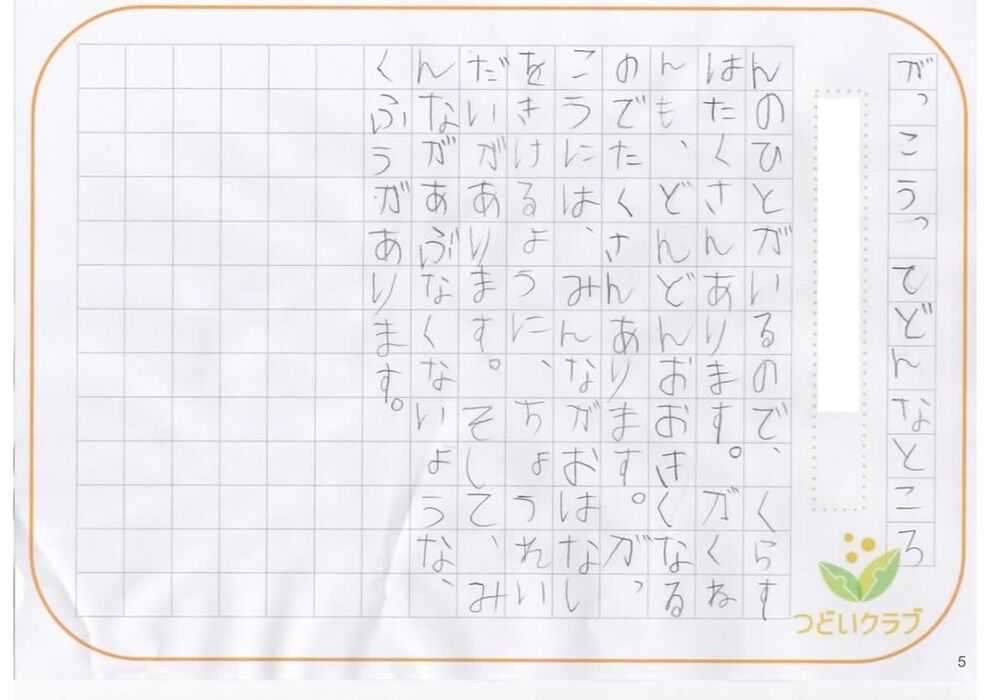 がっこうってどんなところ
んのひとがいるので、くらす
はたくさんあります。がくね
んも、どんどんおおきくなる
のでたくさんあります。がっ
こうには、みんながおはなし
をきけるように、ちょうれい
だいがあります。そして、み
んながあぶなくないような、
くふうがあります。
つどいクラブ
5